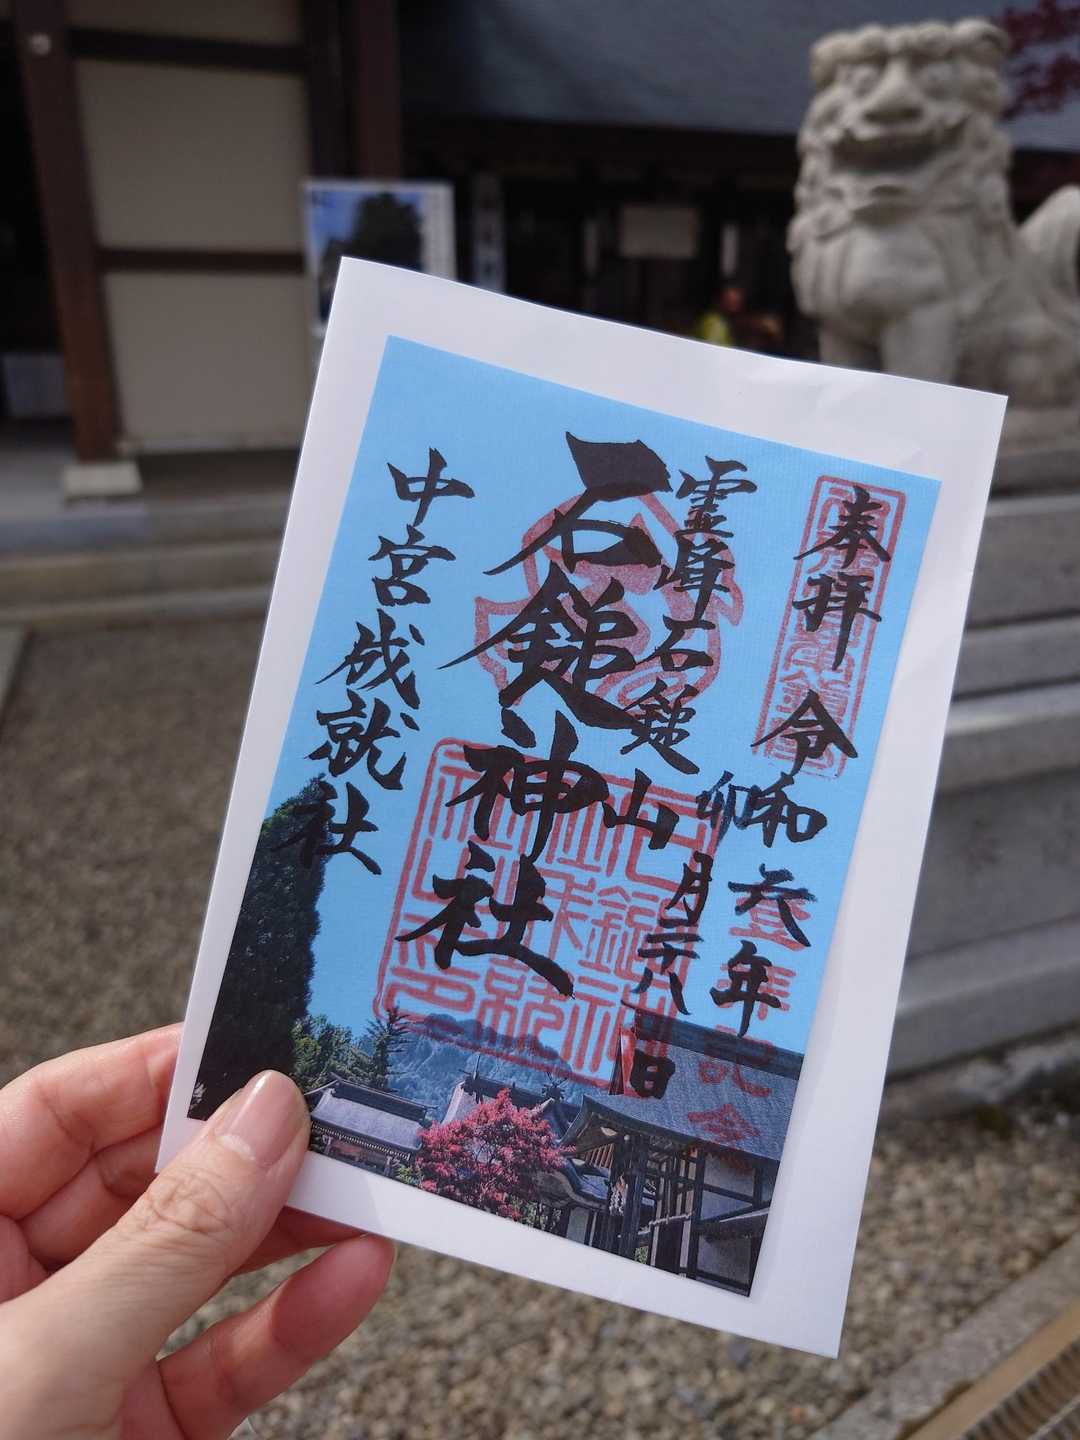 奉拝
令和六年
卯月二十八日
霊峰石鎚山
石鎚神社
中宮成就社